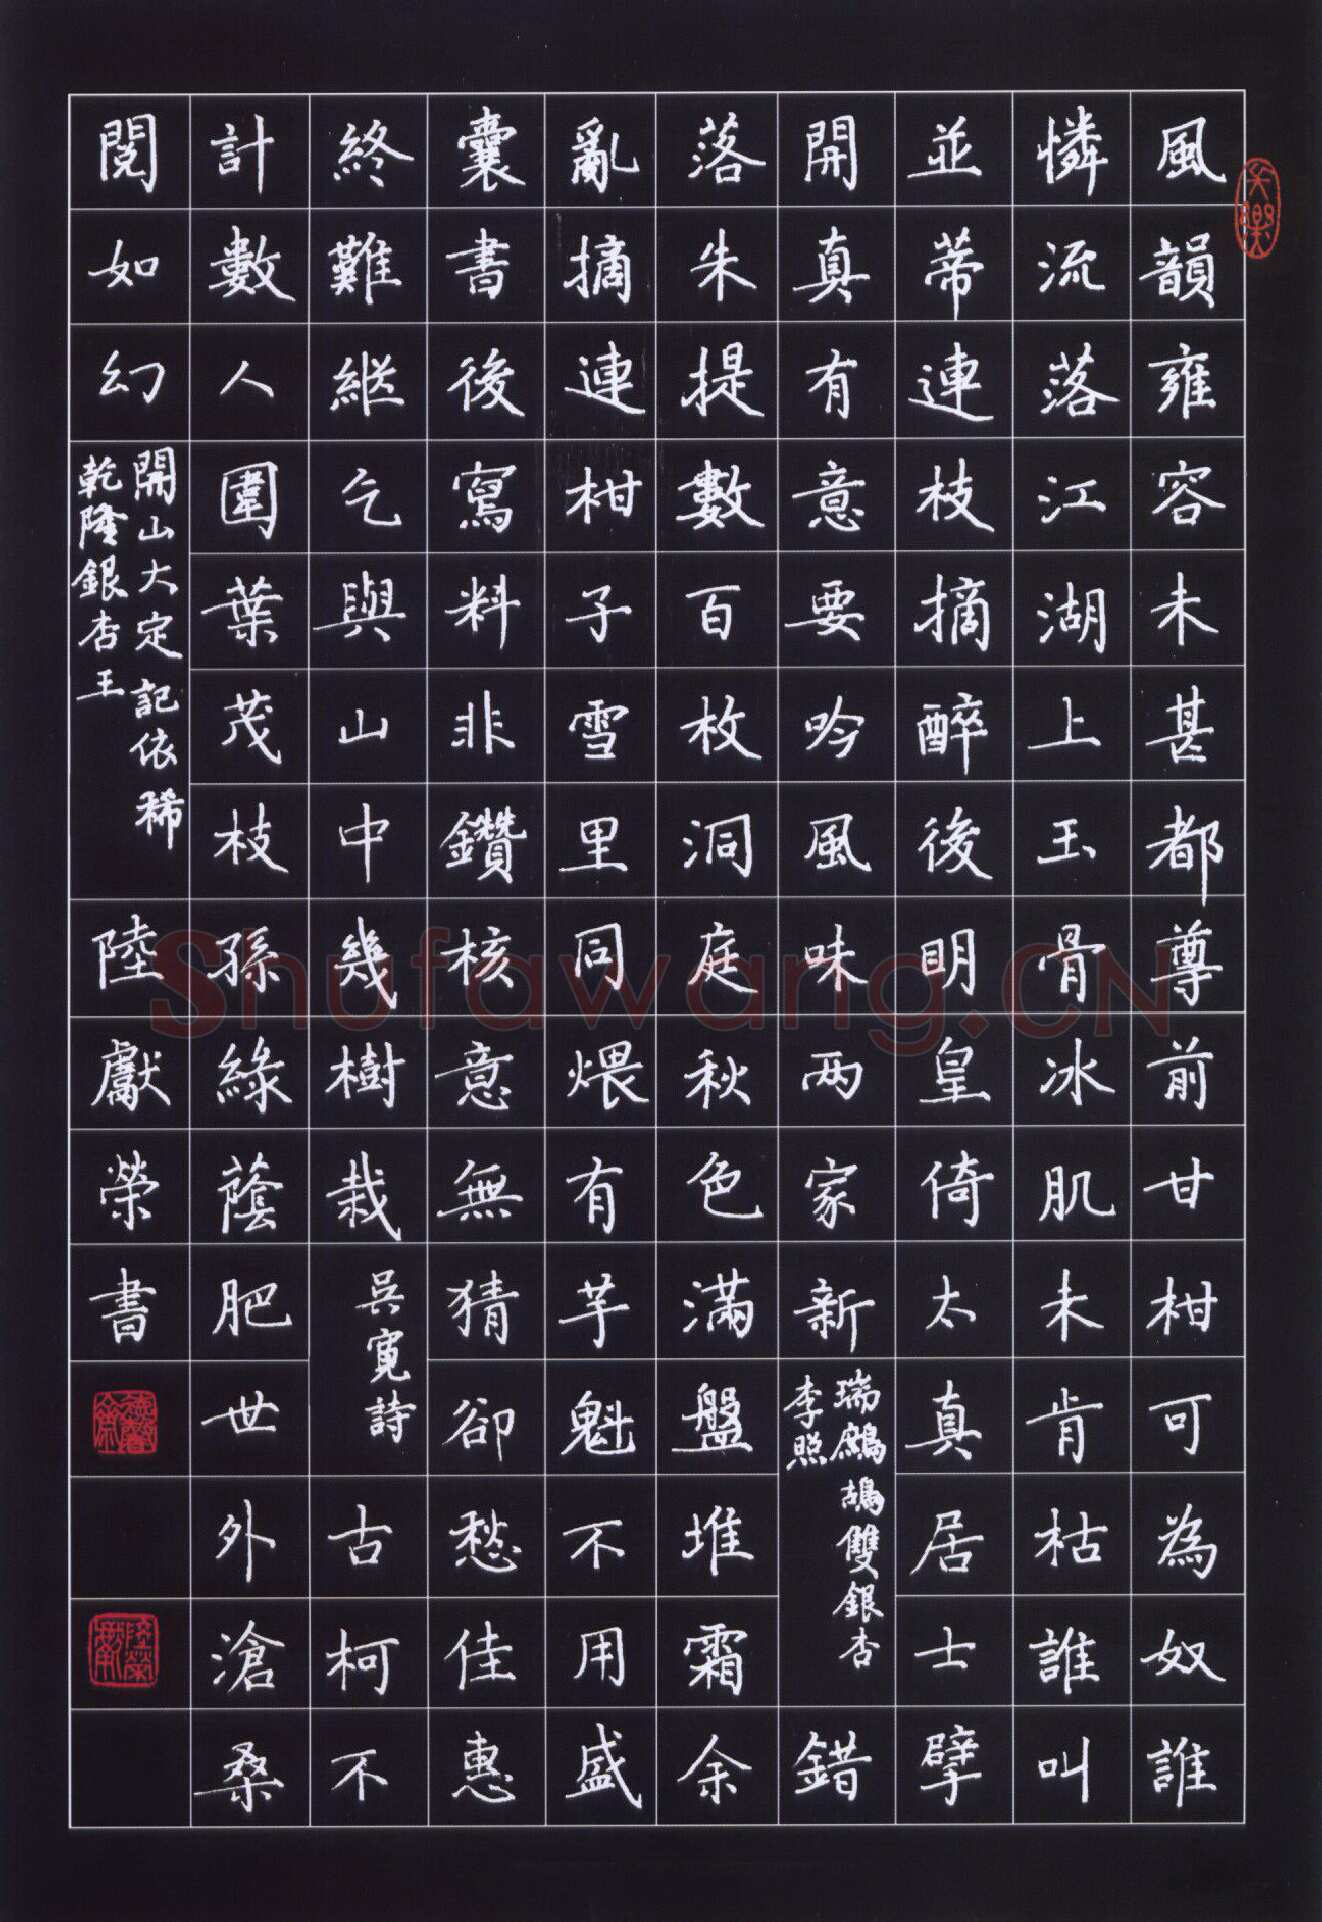 風韻雍容未甚都尊前甘柑可為奴誰
憐流落江湖上玉骨冰肌未肯枯誰叫
並蒂連枝摘醉後明皇倚太真居士擘
開真有意要吟風味两家新
瑞鷓鴣雙銀杏
李照
錯
落朱提數百枚洞庭秋色滿盤堆霜余
亂摘連柑子雪里同煨有芋魁不用盛
囊書後寫料非鑽核意無猜卻愁佳惠
終難継乞與山中幾樹栽
吳寬詩
古柯不
計數人圍葉茂枝孫綠蔭肥世外滄桑
閱如幻
開山大定記依稀
乾隆銀杏王
陸獻榮書
Shufawang.CN